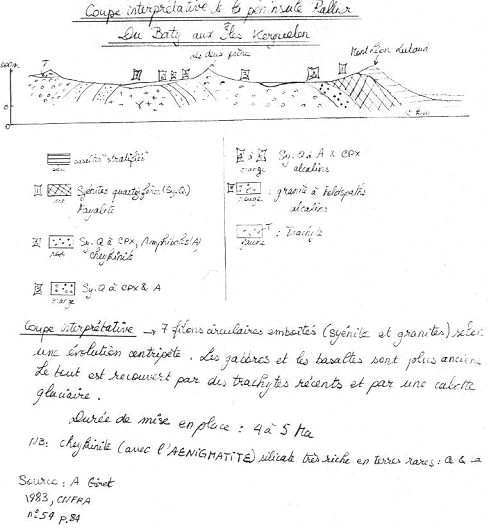 Coupe interprétative de la péninsule Rallier
Du Baty aux Îles Kerguelen
les deux frères
Mont Léon Lutaud
T
0
2 km
basaltes "stratifiés"
Syénites quartzifères (Sy.Q)
Fayalite
Sy.Q à CPX, Amphiboles (A)
chevkinite
Sy.Q à CPX & A
orange
Sy.Q à A & CPX
alcalins
orange
: granite à Feldspaths
alcalins
rouge
T : Trachyte
jaune
Coupe interprétative → 7 filons circulaires emboités (syénite et granites) selon
une évolution centripète. Les gabbros et les basaltes sont plus anciens.
Le tout est recouvert par des trachytes récents et par une calotte
glaciaire.
Durée de mise en place : 4 à 5 Ma
NB: chevkinite (avec l'AENIGMATITE) silicate très riche en terres rares:
Source : A Giret
1983, CNFRA
n° 54 p. 84